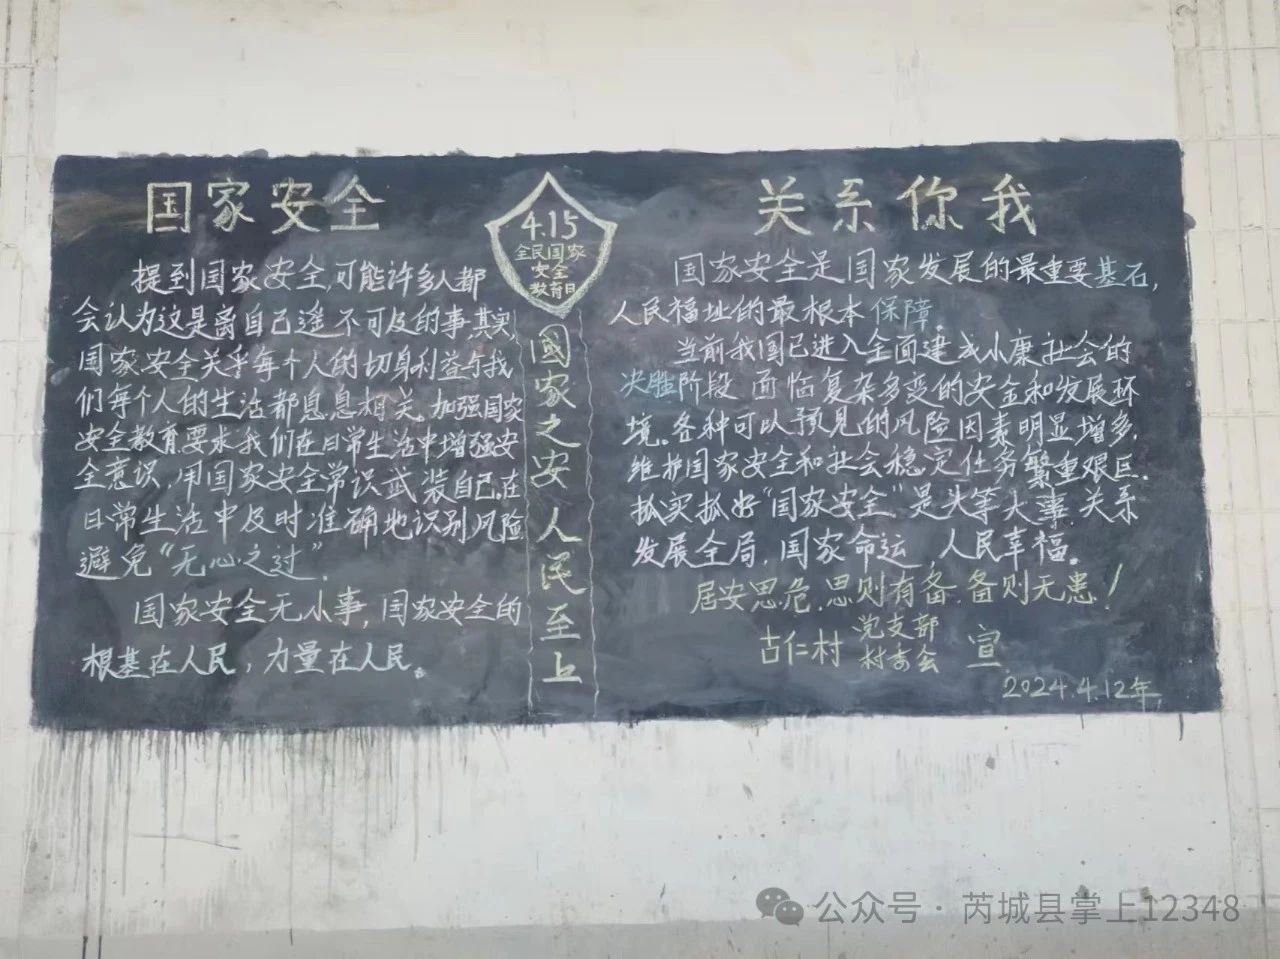 国家安全
提到国家安全,可能许多人都
会认为这是离自己遥不可及的事,其实,
国家安全关乎每个人的切身利益与我
们每个人的生活都息息相关。加强国家
安全教育,要求我们在日常生活中增强安
全意识,用国家安全常识武装自己,在
日常生活中及时准确地识别风险
避免“无心之过”.
国家安全无小事,国家安全的
根基在人民,力量在人民。
4.15
全民国家
安全
教育日
國家之安 人民至上
关系你我
国家安全是国家发展的最重要基石,
人民福址的最根本保障.
当前我国已进入全面建成小康社会的
决胜阶段 面临复杂多变的安全和发展环
境.各种可以预见的风险因素明显增多.
维护国家安全和社会稳定任务繁重艰巨.
抓实抓好“国家安全”是头等大事 关系
发展全局.国家命运 人民幸福。
居安思危.思则有备.备则无患!
古仁村 党支部 宣
村委会
2024.4.12年
公众号·芮城县掌上12348